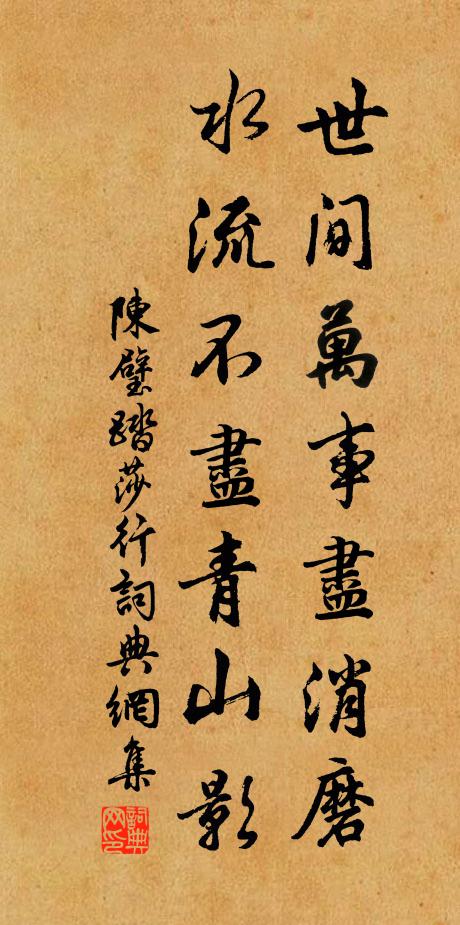 世間萬事盡消磨
水流不盡青山影
陳璧踏莎行詞典網集
詞典網印